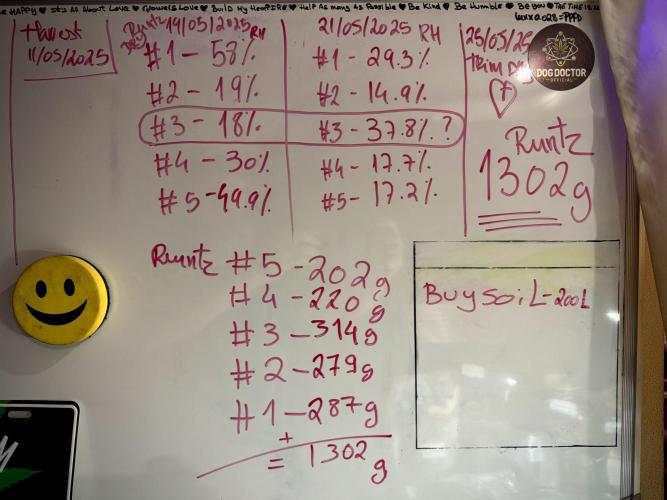 HAPPY ♥ Its All About Love ♥ Grower's Love ♥ Build My HempIRE ♥ Help As many As Possible ♥ Be Kind ♥ Be Humble ♥ Be You ♥ The Time is
2028=PPFD
Harvest
11/05/2025
Runtz 19/05/2025 RH
#1 - 58%
#2 - 19%
#3 - 18%
#4 - 30%
#5 - 49.9%
21/05/2025 RH
#1 - 29.3%
#2 - 14.9%
#3 - 37.8%.?
#4 - 17.7%
#5 - 17.2%
25/05/25
Trim Day
DOG DOCTOR
OFFICIAL
Runtz
1302g
Runtz #5 - 202g
#4 - 220g
#3 - 314g
#2 - 279g
#1 - 287g
+
= 1302g
Buy soil = 200L